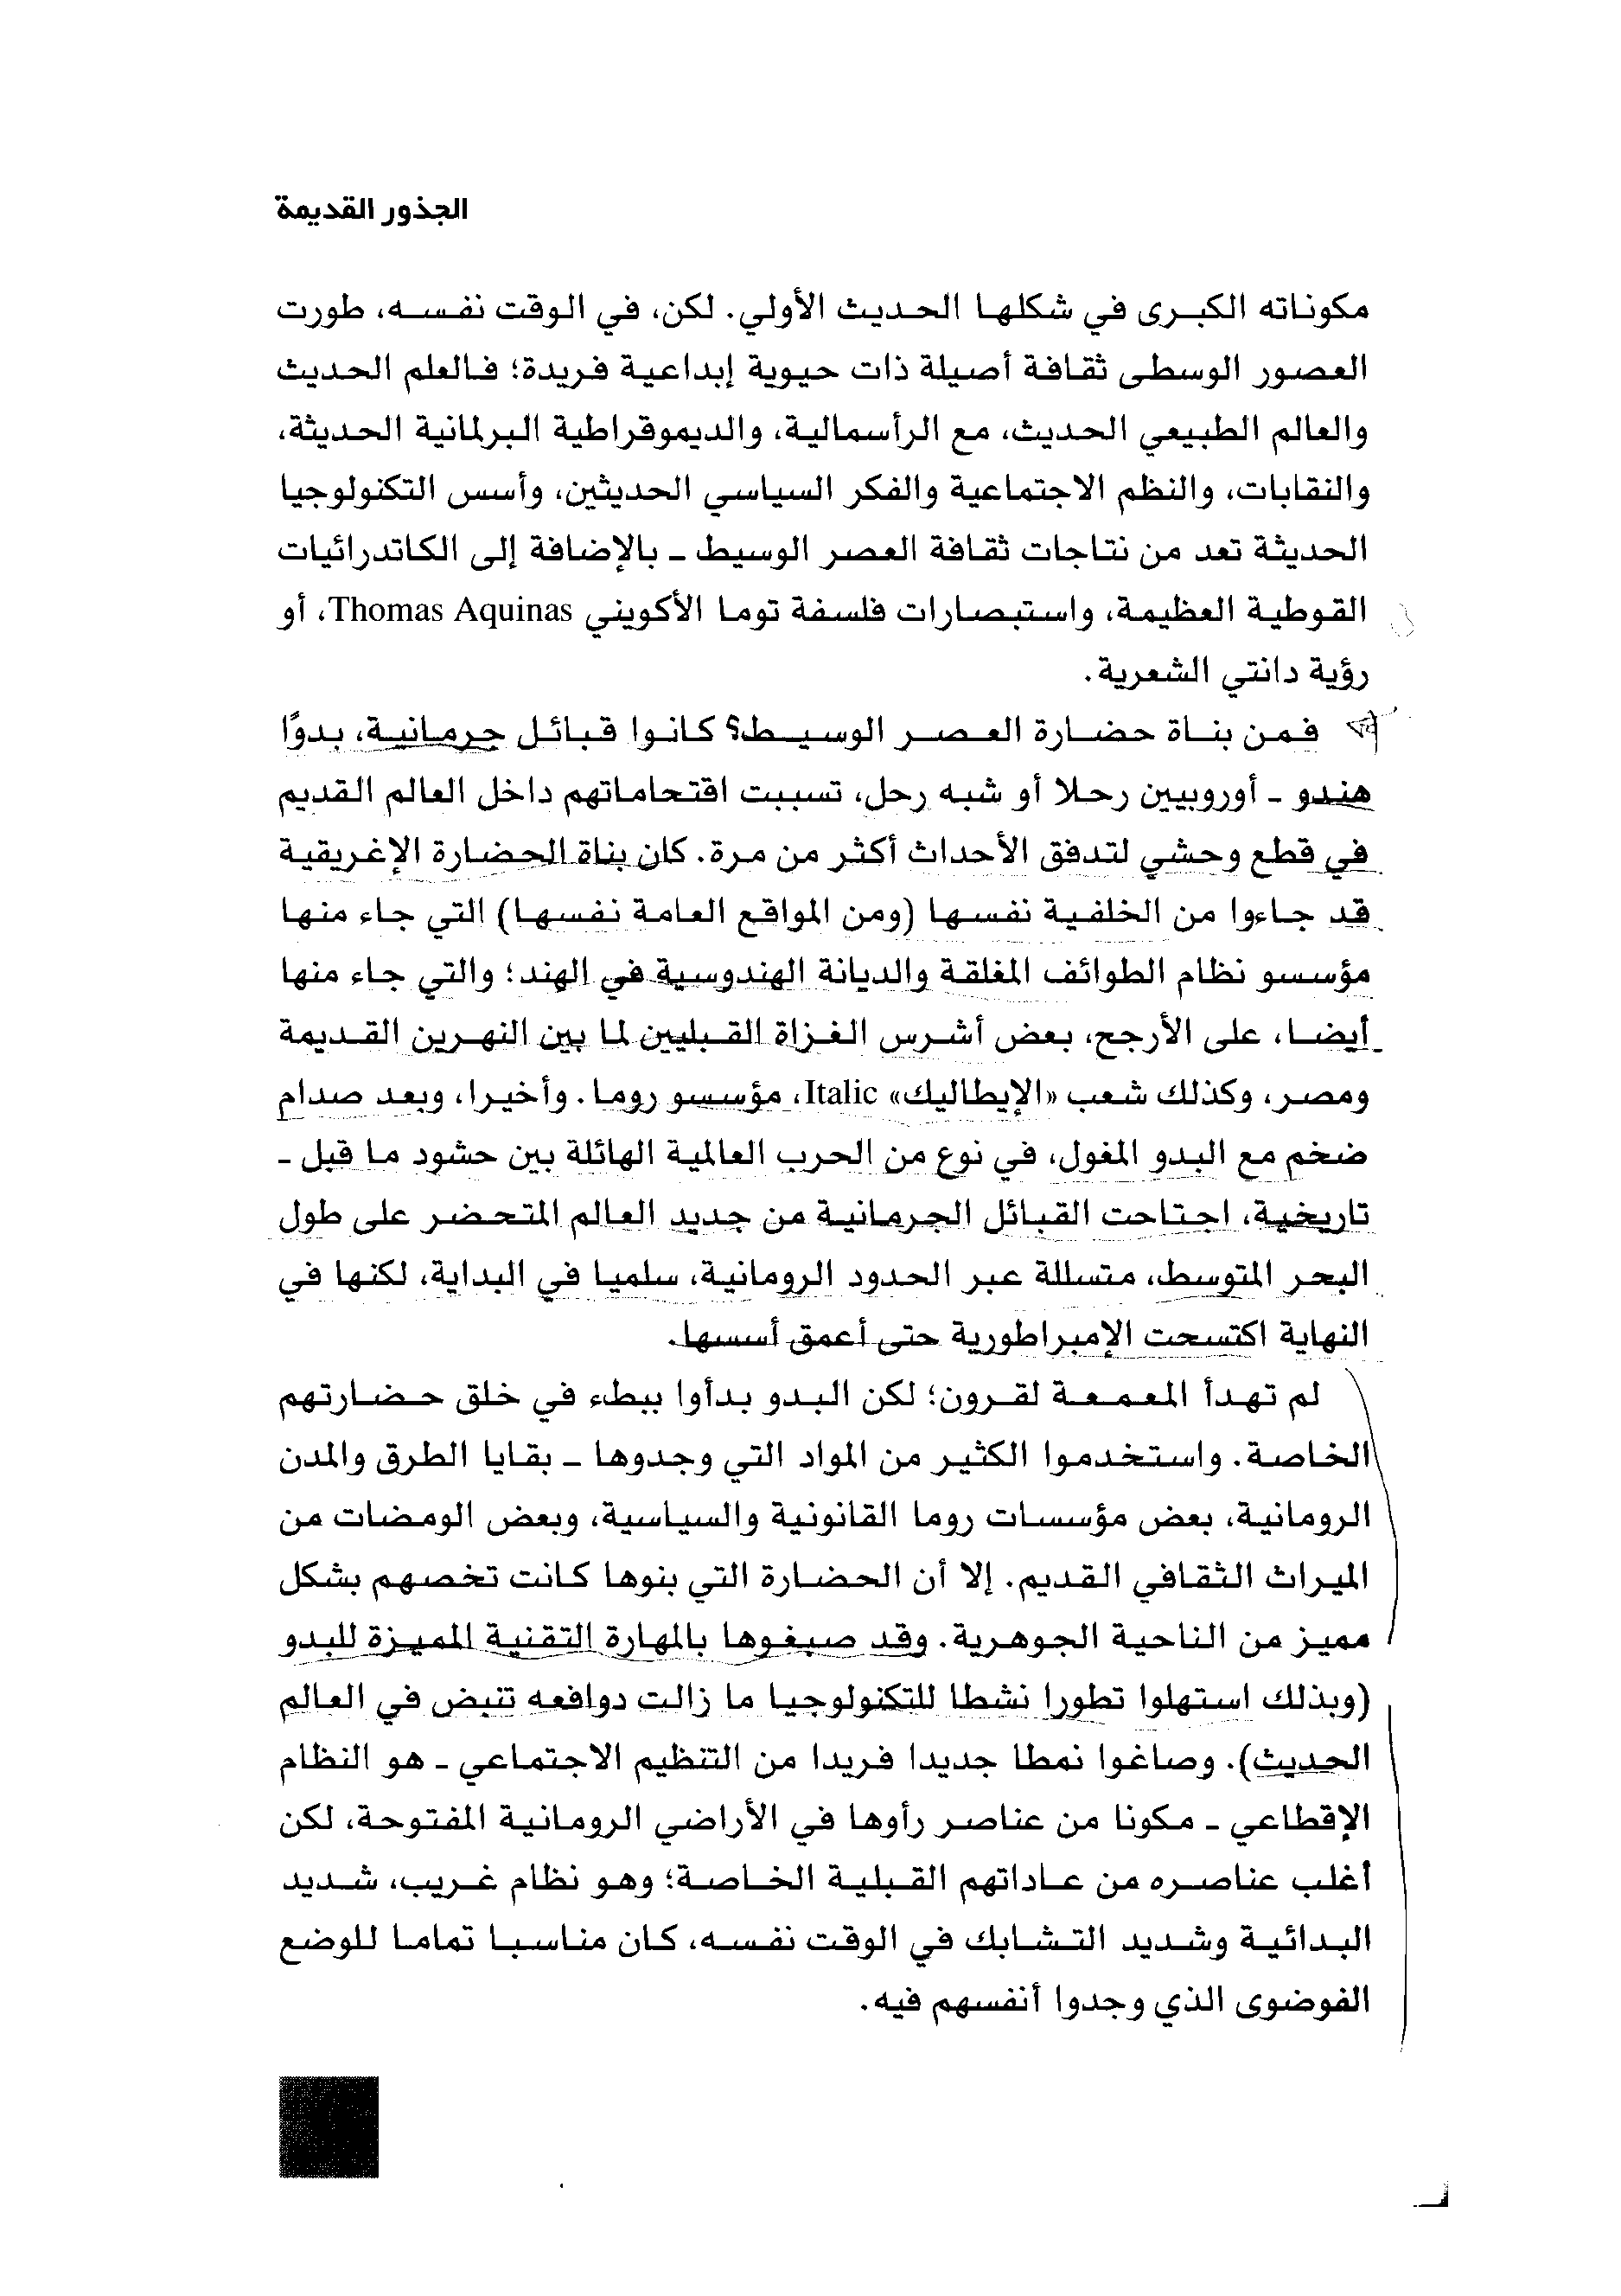 الجذور القديمة
مكوناته الكبرى في شكلها الحديث الأولي. لكن، في الوقت نفسه، طورت
العصور الوسطى ثقافة أصيلة ذات حيوية إبداعية فريدة؛ فالعلم الحديث
والعالم الطبيعي الحديث، مع الرأسمالية، والديموقراطية البرلمانية الحديثة،
والنقابات، والنظم الاجتماعية والفكر السياسي الحديثين، وأسس التكنولوجيا
الحديثة تعد من نتاجات ثقافة العصر الوسيط - بالإضافة إلى الكاتدرائيات
القوطية العظيمة، واستبصارات فلسفة توما الأكويني Thomas Aquinas، أو
رؤية دانتي الشعرية.
فمن بناة حضارة العصر الوسيط؟ كانوا قبائل جرمانية، بدوًا
هندو - أوروبيين رحلا أو شبه رحل، تسببت اقتحاماتهم داخل العالم القديم
في قطع وحشي لتدفق الأحداث أكثر من مرة. كان بناة الحضارة الإغريقية
قد جاءوا من الخلفية نفسها (ومن المواقع العامة نفسها) التي جاء منها
مؤسسو نظام الطوائف المغلقة والديانة الهندوسية في الهند؛ والتي جاء منها
أيضا، على الأرجح، بعض أشرس الغزاة القبليين لما بين النهرين القديمة
ومصر، وكذلك شعب «الإيطاليك» Italic، مؤسسو روما. وأخيرا، وبعد صدام
ضخم مع البدو المغول، في نوع من الحرب العالمية الهائلة بين حشود ما قبل -
تاريخية، اجتاحت القبائل الجرمانية من جديد العالم المتحضر على طول
البحر المتوسط، متسللة عبر الحدود الرومانية، سلميا في البداية، لكنها في
النهاية اكتسحت الإمبراطورية حتى أعمق أسسها.
لم تهدأ المعمعة لقرون؛ لكن البدو بدأوا ببطء في خلق حضارتهم
الخاصة. واستخدموا الكثير من المواد التي وجدوها - بقايا الطرق والمدن
الرومانية، بعض مؤسسات روما القانونية والسياسية، وبعض الومضات من
الميراث الثقافي القديم. إلا أن الحضارة التي بنوها كانت تخصهم بشكل
مميز من الناحية الجوهرية. وقد صبغوها بالمهارة التقنية المميزة للبدو
(وبذلك استهلوا تطورا نشطا للتكنولوجيا ما زالت دوافعه تنبض في العالم
الحديث). وصاغوا نمطا جديدا فريدا من التنظيم الاجتماعي - هو النظام
الإقطاعي - مكونا من عناصر رأوها في الأراضي الرومانية المفتوحة، لكن
أغلب عناصره من عاداتهم القبلية الخاصة؛ وهو نظام غريب، شديد
البدائية وشديد التشابك في الوقت نفسه، كان مناسبا تماما للوضع
الفوضوى الذي وجدوا أنفسهم فيه.